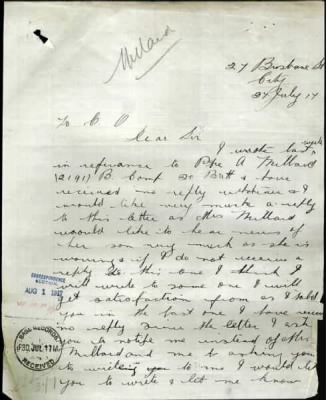 Millard
27 Brisbane St
City
27 July 17
To C O
Dear Sir
I wrote last week
in referance to Pte A Millard
(2191) B Comp 20 Batt & have
received no reply whatever & I
would like very much a reply
to this letter as Mrs Millard
would like to hear news of
her son very much as she is
worrying if I do not receive a
reply to this one I think I
will write to some one I will
get satisfaction from as I told
you in the last one I have received
no reply since the letter I ask
you to notify me instead of Mrs
Millard and me
to writing you to me I would like
you to write & let me know
CORRESPONDENCE
SECTION
AUG 1 1917
BASE RECORDS
30 JUL 17
RECEIVED